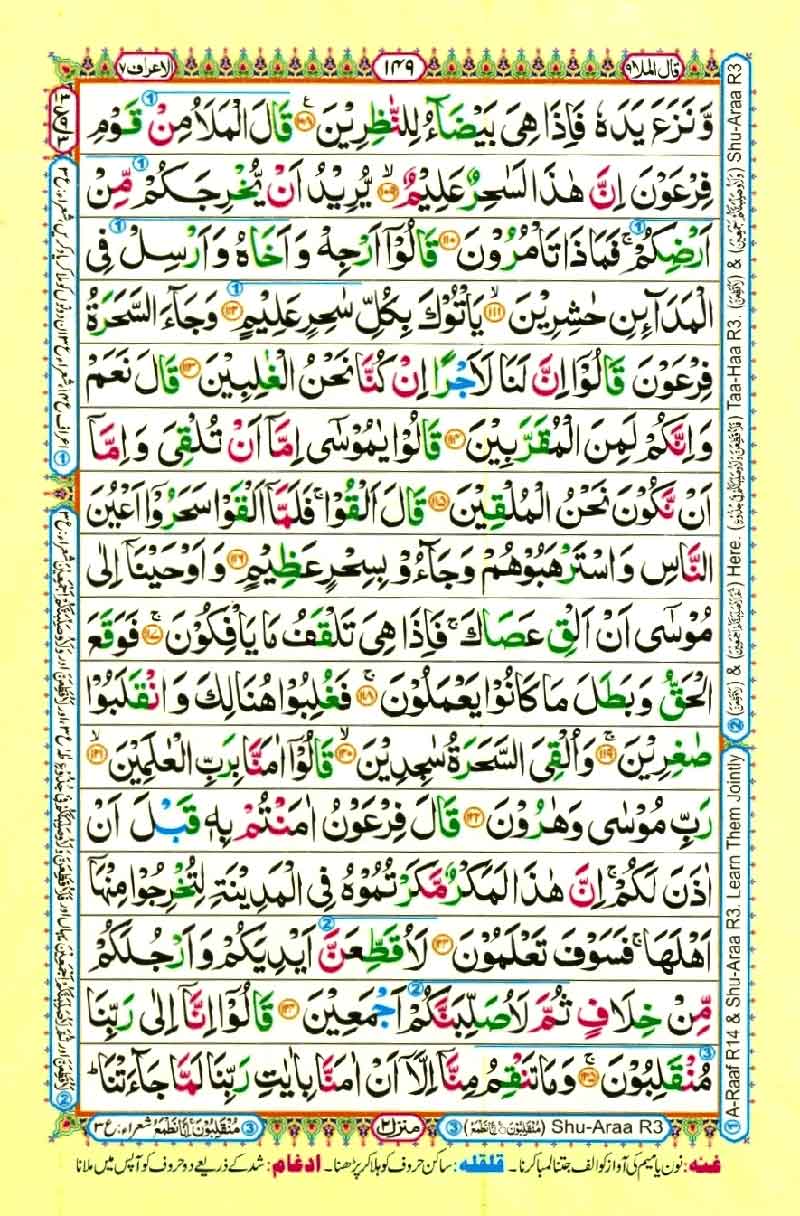 قال الملا۹
۱۴۹
الاعراف۷
وَّ نَزَعَ یَدَهٗ فَاِذَا هِیَ بَیْضَآءُ لِلنّٰظِرِیْنَ ۱۰۸ قَالَ الْمَلَاُ مِنْ قَوْمِ
فِرْعَوْنَ اِنَّ هٰذَا لَسٰحِرٌ عَلِیْمٌ ۱۰۹ یُّرِیْدُ اَنْ یُّخْرِجَكُمْ مِّنْ
اَرْضِكُمْ ۚ فَمَاذَا تَاْمُرُوْنَ ۱۱۰ قَالُوْۤا اَرْجِهْ وَ اَخَاهُ وَ اَرْسِلْ فِی
الْمَدَآئِنِ حٰشِرِیْنَ ۱۱۱ یَاْتُوْكَ بِكُلِّ سٰحِرٍ عَلِیْمٍ ۱۱۲ وَ جَآءَ السَّحَرَةُ
فِرْعَوْنَ قَالُوْۤا اِنَّ لَنَا لَاَجْرًا اِنْ كُنَّا نَحْنُ الْغٰلِبِیْنَ ۱۱۳ قَالَ نَعَمْ
وَ اِنَّكُمْ لَمِنَ الْمُقَرَّبِیْنَ ۱۱۴ قَالُوْا یٰمُوْسٰۤی اِمَّاۤ اَنْ تُلْقِیَ وَ اِمَّاۤ
اَنْ نَّكُوْنَ نَحْنُ الْمُلْقِیْنَ ۱۱۵ قَالَ اَلْقُوْا ۚ فَلَمَّاۤ اَلْقَوْا سَحَرُوْۤا اَعْیُنَ
النَّاسِ وَ اسْتَرْهَبُوْهُمْ وَ جَآءُوْ بِسِحْرٍ عَظِیْمٍ ۱۱۶ وَ اَوْحَیْنَاۤ اِلٰی
مُوْسٰۤی اَنْ اَلْقِ عَصَاكَ ۚ فَاِذَا هِیَ تَلْقَفُ مَا یَاْفِكُوْنَ ۱۱۷ فَوَقَعَ
الْحَقُّ وَ بَطَلَ مَا كَانُوْا یَعْمَلُوْنَ ۱۱۸ فَغُلِبُوْا هُنَالِكَ وَ انْقَلَبُوْا
صٰغِرِیْنَ ۱۱۹ وَ اُلْقِیَ السَّحَرَةُ سٰجِدِیْنَ ۱۲۰ قَالُوْۤا اٰمَنَّا بِرَبِّ الْعٰلَمِیْنَ ۱۲۱
رَبِّ مُوْسٰی وَ هٰرُوْنَ ۱۲۲ قَالَ فِرْعَوْنُ اٰمَنْتُمْ بِهٖ قَبْلَ اَنْ
اٰذَنَ لَكُمْ ۚ اِنَّ هٰذَا لَمَكْرٌ مَّكَرْتُمُوْهُ فِی الْمَدِیْنَةِ لِتُخْرِجُوْا مِنْهَاۤ
اَهْلَهَا ۚ فَسَوْفَ تَعْلَمُوْنَ ۱۲۳ لَاُقَطِّعَنَّ اَیْدِیَكُمْ وَ اَرْجُلَكُمْ
مِّنْ خِلَافٍ ثُمَّ لَاُصَلِّبَنَّكُمْ اَجْمَعِیْنَ ۱۲۴ قَالُوْۤا اِنَّاۤ اِلٰی رَبِّنَا
مُنْقَلِبُوْنَ ۱۲۵ وَ مَا تَنْقِمُ مِنَّاۤ اِلَّاۤ اَنْ اٰمَنَّا بِاٰیٰتِ رَبِّنَا لَمَّا جَآءَتْنَا ؕ
① A-Raaf R14 & Shu-Araa R3. Learn Them Jointly ② & Here. Taa-Haa R3. & Shu-Araa R3
③ Shu-Araa R3
منزل۲
③ شعراء: ع۳
غنه: نون یا میم کی آواز کو الف جتنا لمبا کرنا۔ قلقله: ساکن حروف کو ہلا کر پڑھنا۔ ادغام: شد کے ذریعے دو حروف کو آپس میں ملانا